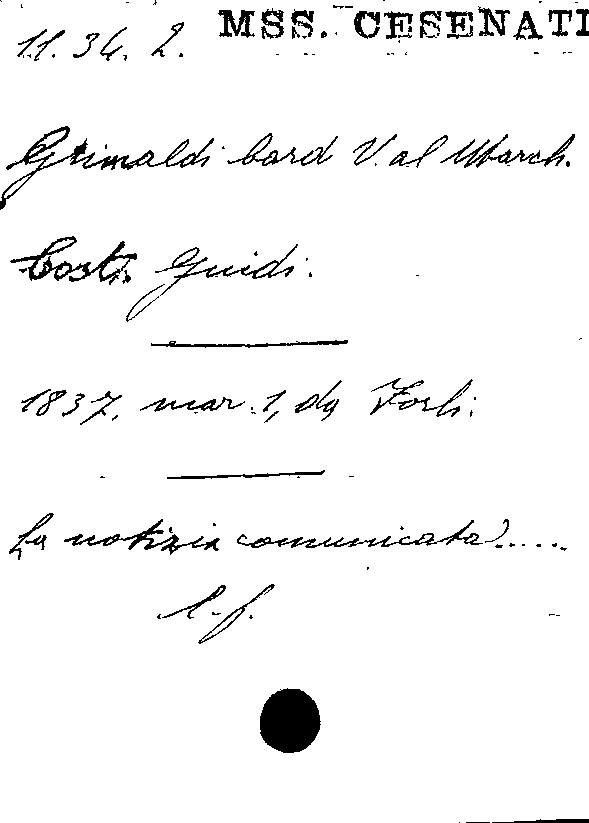 11. 34. 2. MSS. CESENATI
Grimaldi Card V. al March.
Cost. Guidi.
1837, mar. 1, da Forlì.
La notizia comunicata .....
l. f.